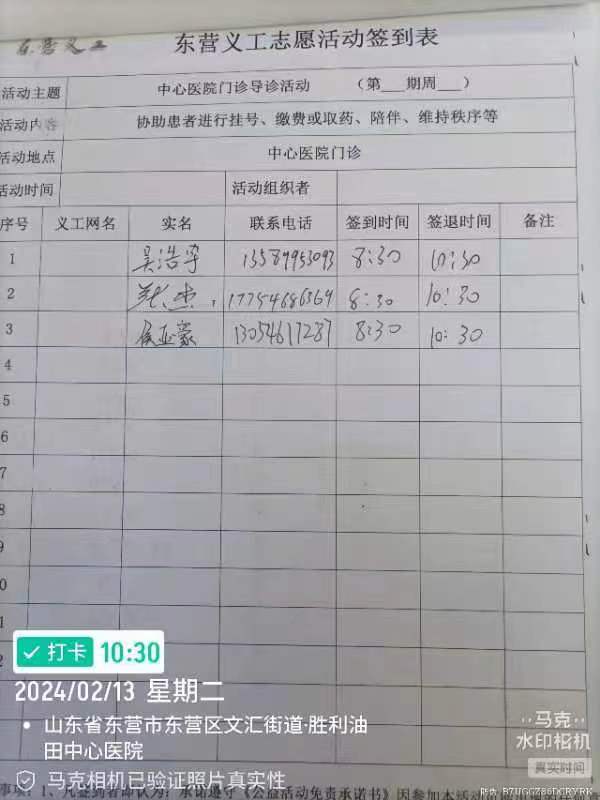 东营义工
东营义工志愿活动签到表
活动主题 中心医院门诊导诊活动 （第___期周___）
活动内容 协助患者进行挂号、缴费或取药、陪伴、维持秩序等
活动地点 中心医院门诊
活动时间 活动组织者
序号 义工网名 实名 联系电话 签到时间 签退时间 备注
1 吴浩宇 13589953093 8:30 10:30
2 杰 17754686564 8:30 10:30
3 侯亚豪 13054617287 8:30 10:30
4
5
6
7
8
9
0
1
2
打卡 10:30
2024/02/13 星期二
山东省东营市东营区文汇街道·胜利油
田中心医院
马克相机已验证照片真实性
马克
水印相机
真实时间
防伪 B7UGGZ86DCRYRK
事项：1、凡签到者即认为：承诺遵守《公益活动免责承诺书》因参加本活动